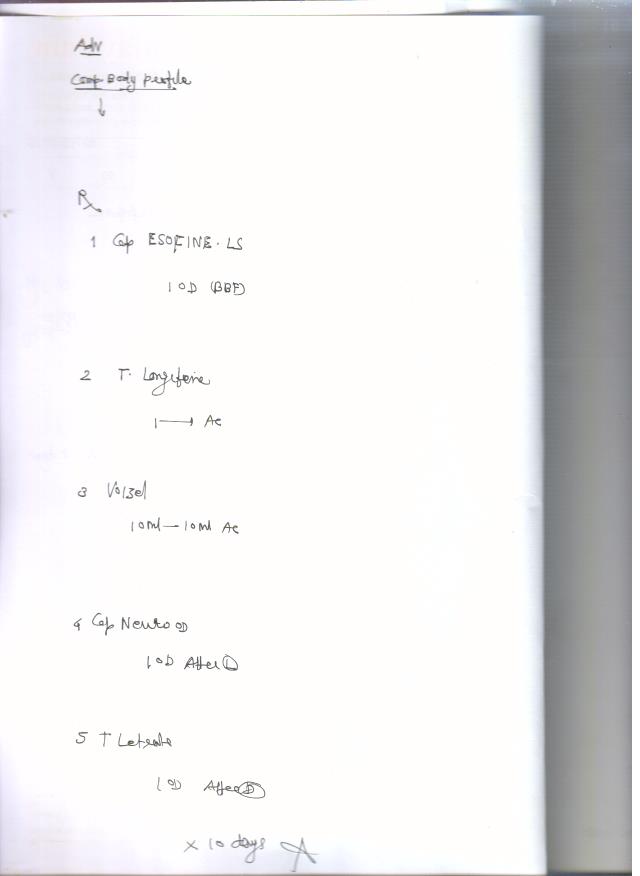 Adv
Comp Body profile
↓
Rx
1 Cap ESOFINE-LS
1 OD (BBF)
2 T. Longifene
1 → AC
3 Volzel
10ml — 10ml AC
4 Cap Neuro OD
1 OD After L
5 T
1 OD After D
x 10 days